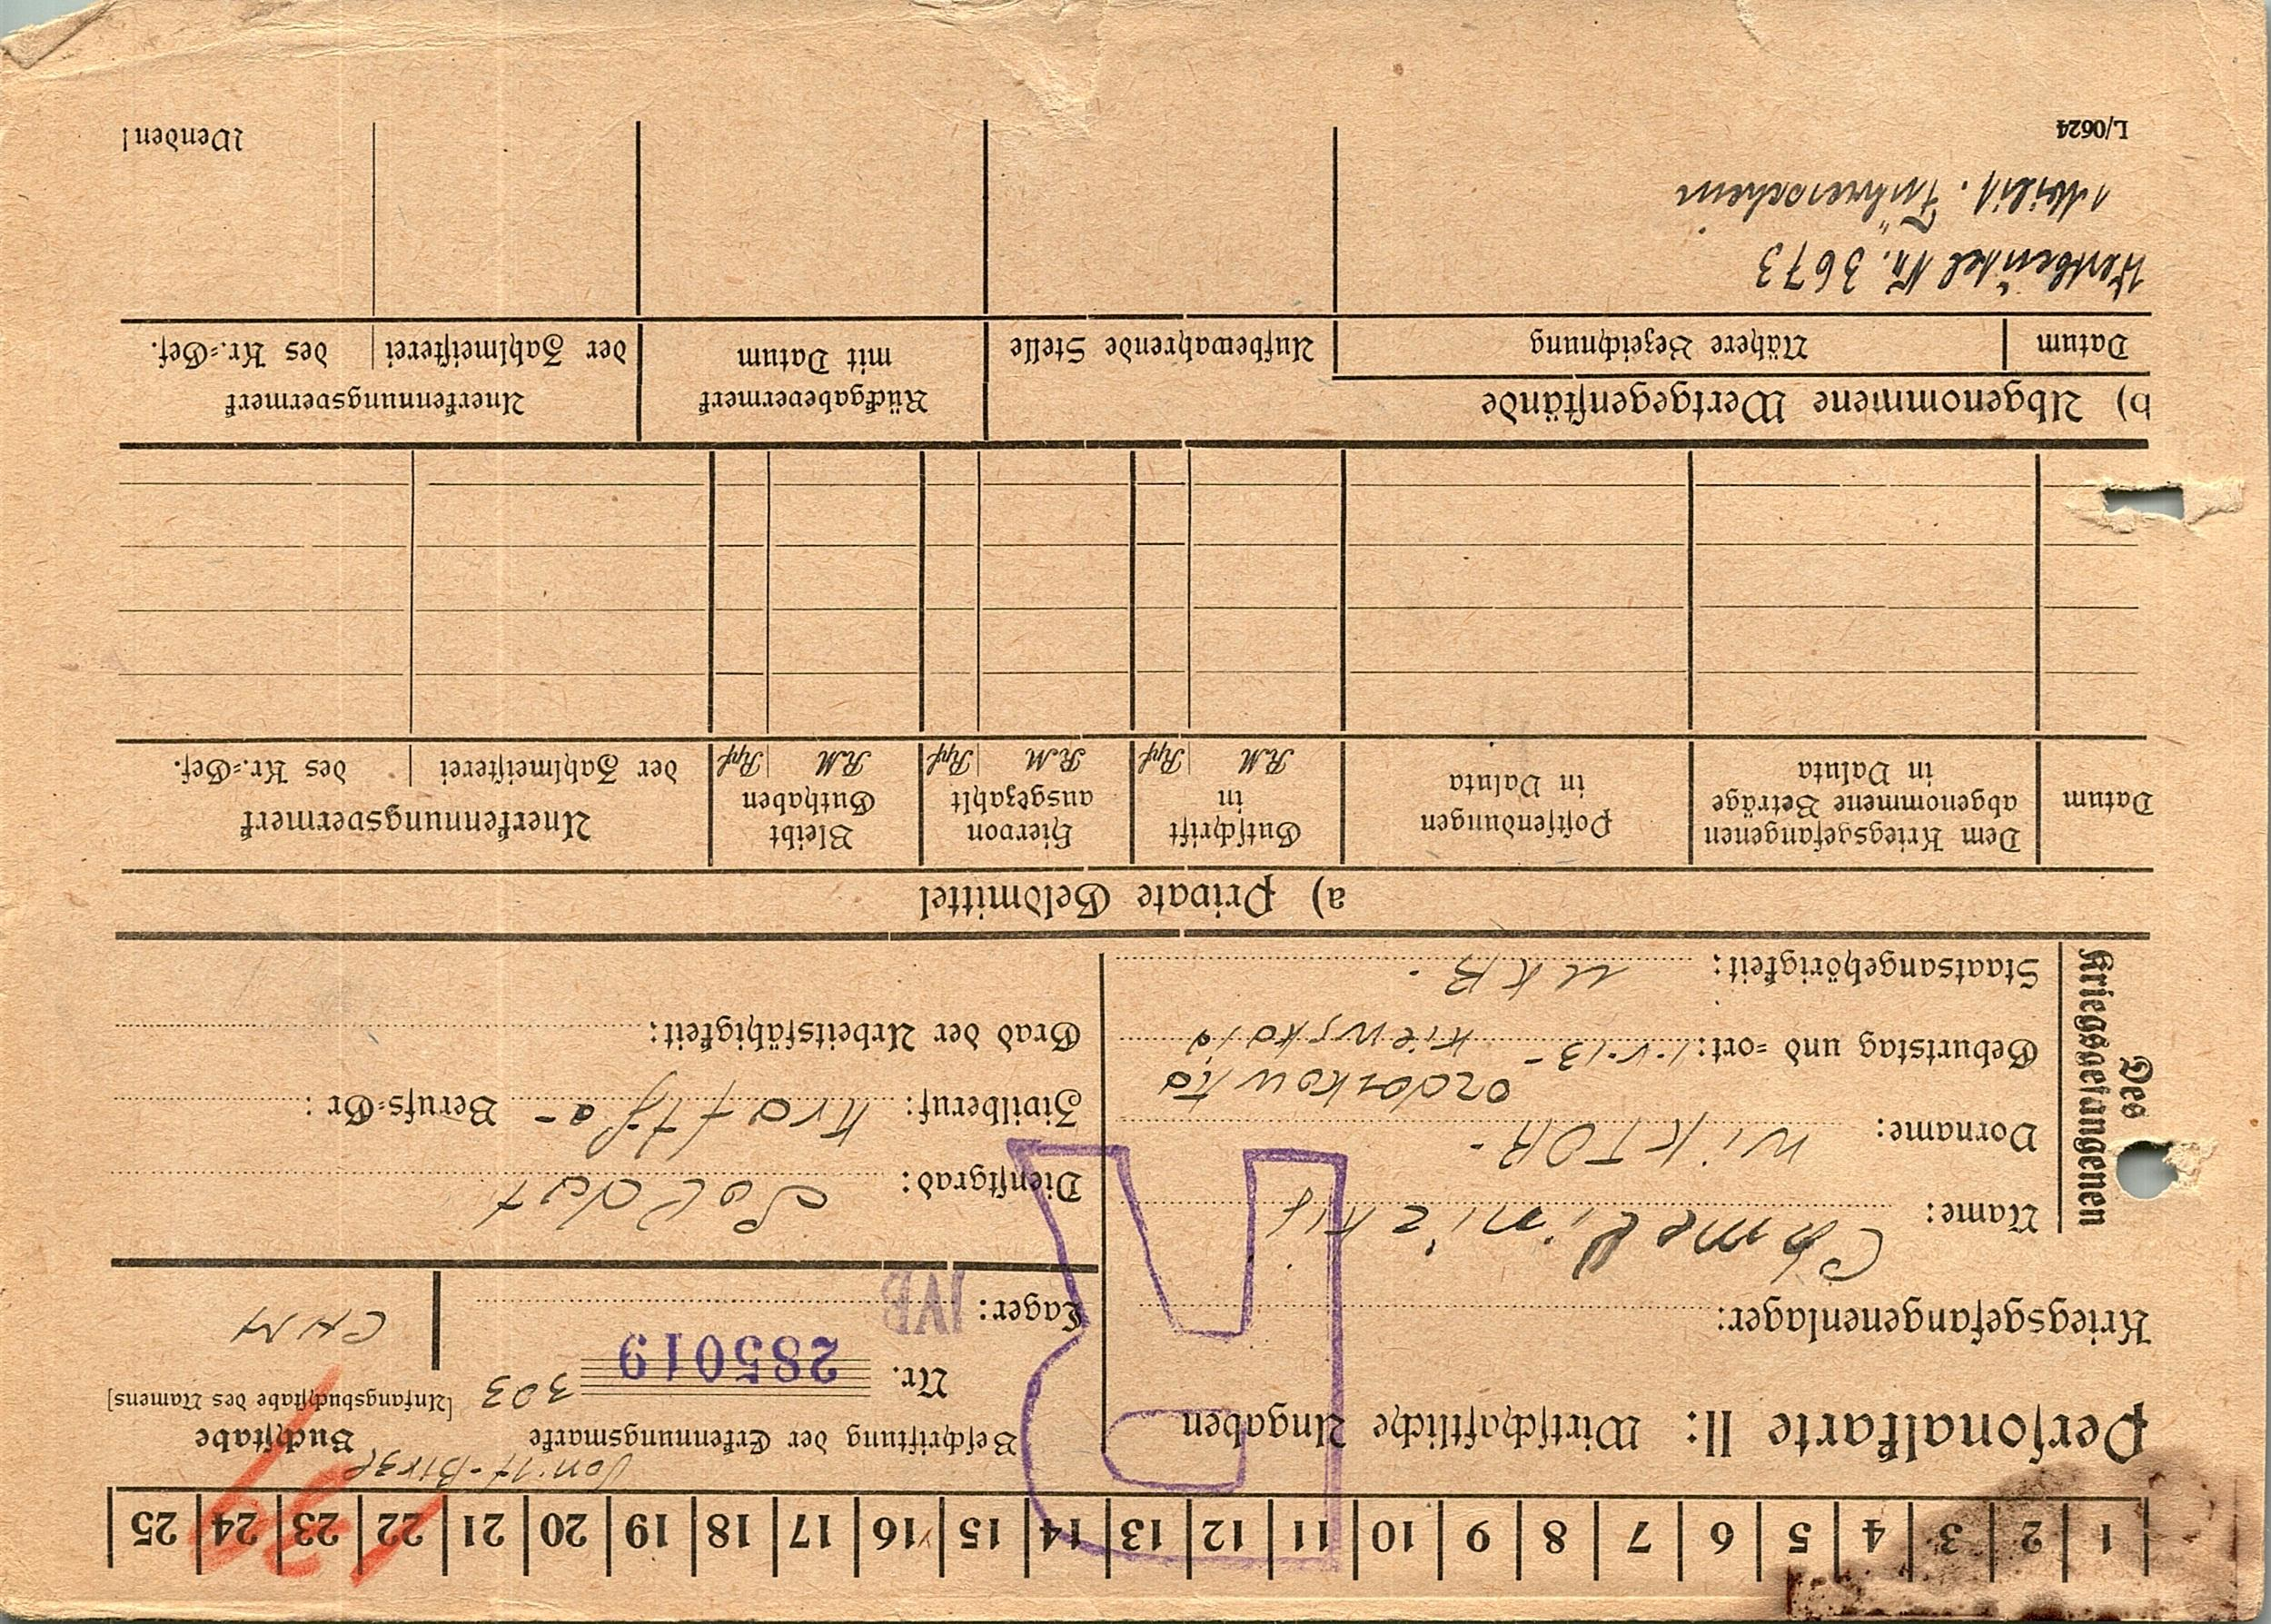 1 2 3 4 5 6 7 8 9 10 11 12 13 14 15 16 17 18 19 20 21 22 23 24 25
Personalkarte II: Wirtschaftliche Angaben
Beschriftung der Erkennungsmarke
Buchstabe
[Anfangsbuchstabe des Namens]
Nr. 285019 303
Kriegsgefangenenlager:
Lager: IVB
CHM
Des Kriegsgefangenen
Name: Chmelinickij
Dienstgrad: Soldat
Vorname: WikTOR-
Zivilberuf: Berufs-Gr:
Geburtstag und -ort: 1.V.13- Kiewskaja
Grad der Arbeitsfähigkeit:
Staatsangehörigkeit: UKR.
a) Private Geldmittel
Datum
Dem Kriegsgefangenen abgenommene Beträge in Valuta
Postsendungen in Valuta
Gutschrift in
RM Rpf
Hiervon ausgezahlt
RM Rpf
Bleibt Guthaben
RM Rpf
Anerkennungsvermerk
der Zahlmeisterei des Kr.-Gef.
b) Abgenommene Wertgegenstände
Datum Nähere Bezeichnung
Aufbewahrende Stelle
Rückgabevermerk mit Datum
Anerkennungsvermerk
der Zahlmeisterei des Kr.-Gef.
Wertbeutel Nr. 3673
1 Milit. Führerschein
L/0624
Wenden!